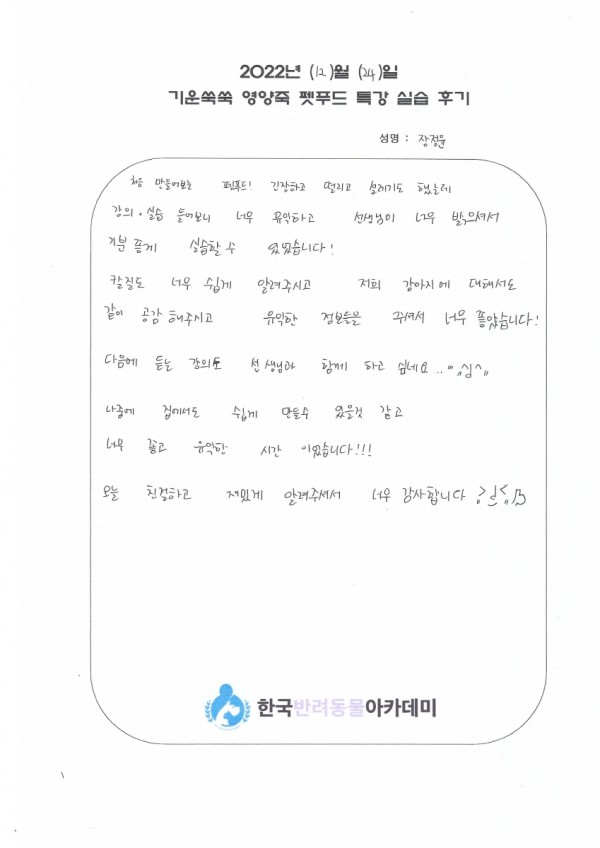 2022년 (12)월 (24)일
기운쑥쑥 영양죽 펫푸드 특강 실습 후기
성명 : 장정윤
처음 만들어보는 펫푸드! 긴장하고 떨리고 설레기도 했는데
강의·실습 들어보니 너무 유익하고 선생님이 너무 밝으셔서
기분 좋게 실습할 수 있었습니다!
칼질도 너무 쉽게 알려주시고 저희 강아지에 대해서도
같이 공감해주시고 유익한 정보들을 주셔서 너무 좋았습니다!
다음에 듣는 강의도 선생님과 함께 하고 싶네요..
나중에 집에서도 쉽게 만들수 있을것 같고
너무 좋고 유익한 시간 이었습니다!!!
오늘 친절하고 재밌게 알려주셔서 너무 감사합니다
한국반려동물아카데미